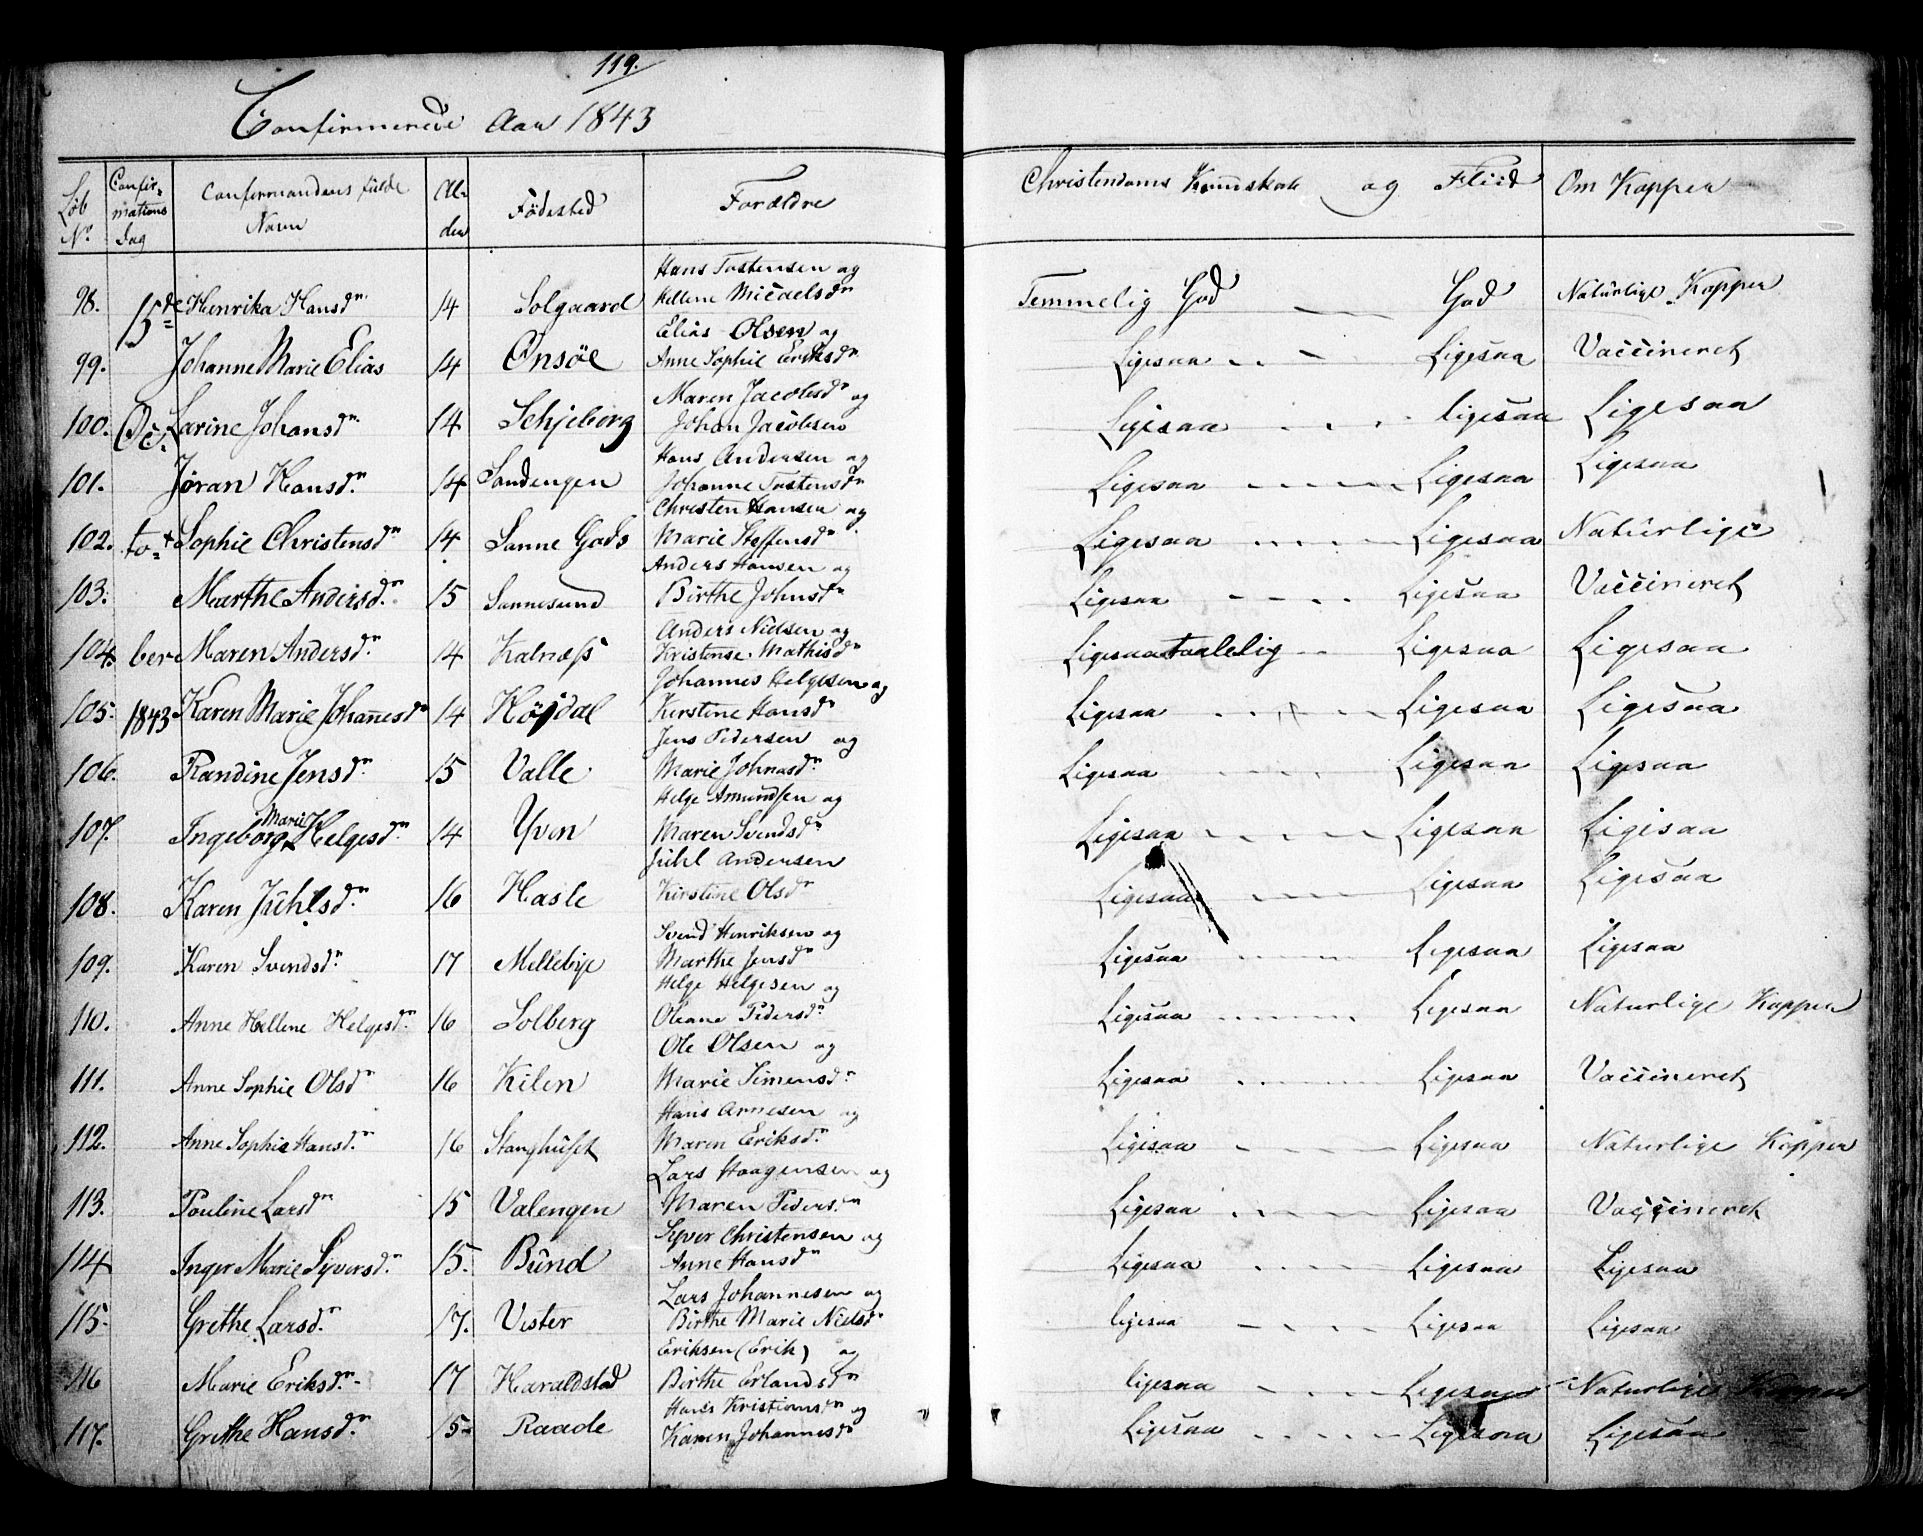 119.
Confirmerede Aar 1843
Løb No. Confirmations Dag Confirmandens fulde Navn Alder Fødested Forældre Christendoms Kundskab og Fliid Om Kopper
Hans Tostensen og
98. 15de Henrika Hansdr. 14 Solgaard Hellene Micaelsdr Temmelig God God Naturlige Kopper
Elias Olsen og
99. Johanne Marie Elias 14 Onsøe Anne Sophie Eriksdr Ligesaa Ligesaa Vaccineret
Maren Jacobsdr og
100. Oc Larine Johansdr. 14 Schjeborg Johan Jacobsen Ligesaa ligesaa Ligesaa
Hans Andersen og
101. Jøran Hansdr. 14 Sandengen Johanne Tostensdr Ligesaa Ligesaa Ligesaa
Christen Hansen og
102. to Sophie Christensdr 14. Sanne Gods Marie Steffensdr Ligesaa Ligesaa Naturlige
Anders Hansen og
103. Marthe Andersdr. 15 Sannesund Birthe Johnsdr Ligesaa Ligesaa Vaccineret
Anders Nielsen og
104. ber Maren Andersdr. 14 Kalnæss Kristense Mathisdr Ligesaa taalelig Ligesaa Ligesaa
Johannes Helgesen og
105. 1843 Karen Marie Johanesdr 14 Højdal Kerstine Hansdr Ligesaa Ligesaa Ligesaa
Jens Pedersen og
106. Randine Jensdr. 15 Valle Marie Johnasdr. Ligesaa Ligesaa Ligesaa
Helge Amundsen og
107. Ingeborg Marie Helgesdr. 14 Yven Maren Svendsdr Ligesaa Ligesaa Ligesaa
Juhl Andersen
108. Karen Juhlsdr. 16 Hasle Kirstine Olsdr Ligesaa Ligesaa Ligesaa
Svend Henriksen og
109. Karen Svendsdr. 17 Mellebye Marthe Jensdr Ligesaa Ligesaa Ligesaa
Helge Helgesen og
110. Anne Hellene Helgesdr. 16 Solberg Oleane Pedersdr. Ligesaa Ligesaa Naturlige Kopper
Ole Olsen og
111. Anne Sophie Olsdr 16 Kilen Marie Simensdr. Ligesaa Ligesaa Vaccineret
Hans Arnesen og
112. Anne Sophie Hansdr. 16 Stanghuset Maren Eriksdr. Ligesaa Ligesaa Naturlige Kopper
Lars Haagensen og
113. Pouline Larsdr 15 Valengen Maren Pedersdr. Ligesaa Ligesaa Vaccineret
Syver Christensen og
114 Inger Marie Syversdr. 15. Bund Anne Hansdr Ligesaa Ligesaa Ligesaa
Lars Johannesen og
115. Grethe Larsdr. 17. Vister Birthe Marie Nielsdr ligesaa Ligesaa Ligesaa
Eriksen (Erik) og
116 Marie Eriksdr. 17 Haraldstad Birthe Erlandsdr ligesaa Ligesaa Naturlige Kopper
Hans Kristiansen og
117. Grethe Hansdr. 15 Raade Karen Johannesdr Ligesaa Ligesaa Ligesaa